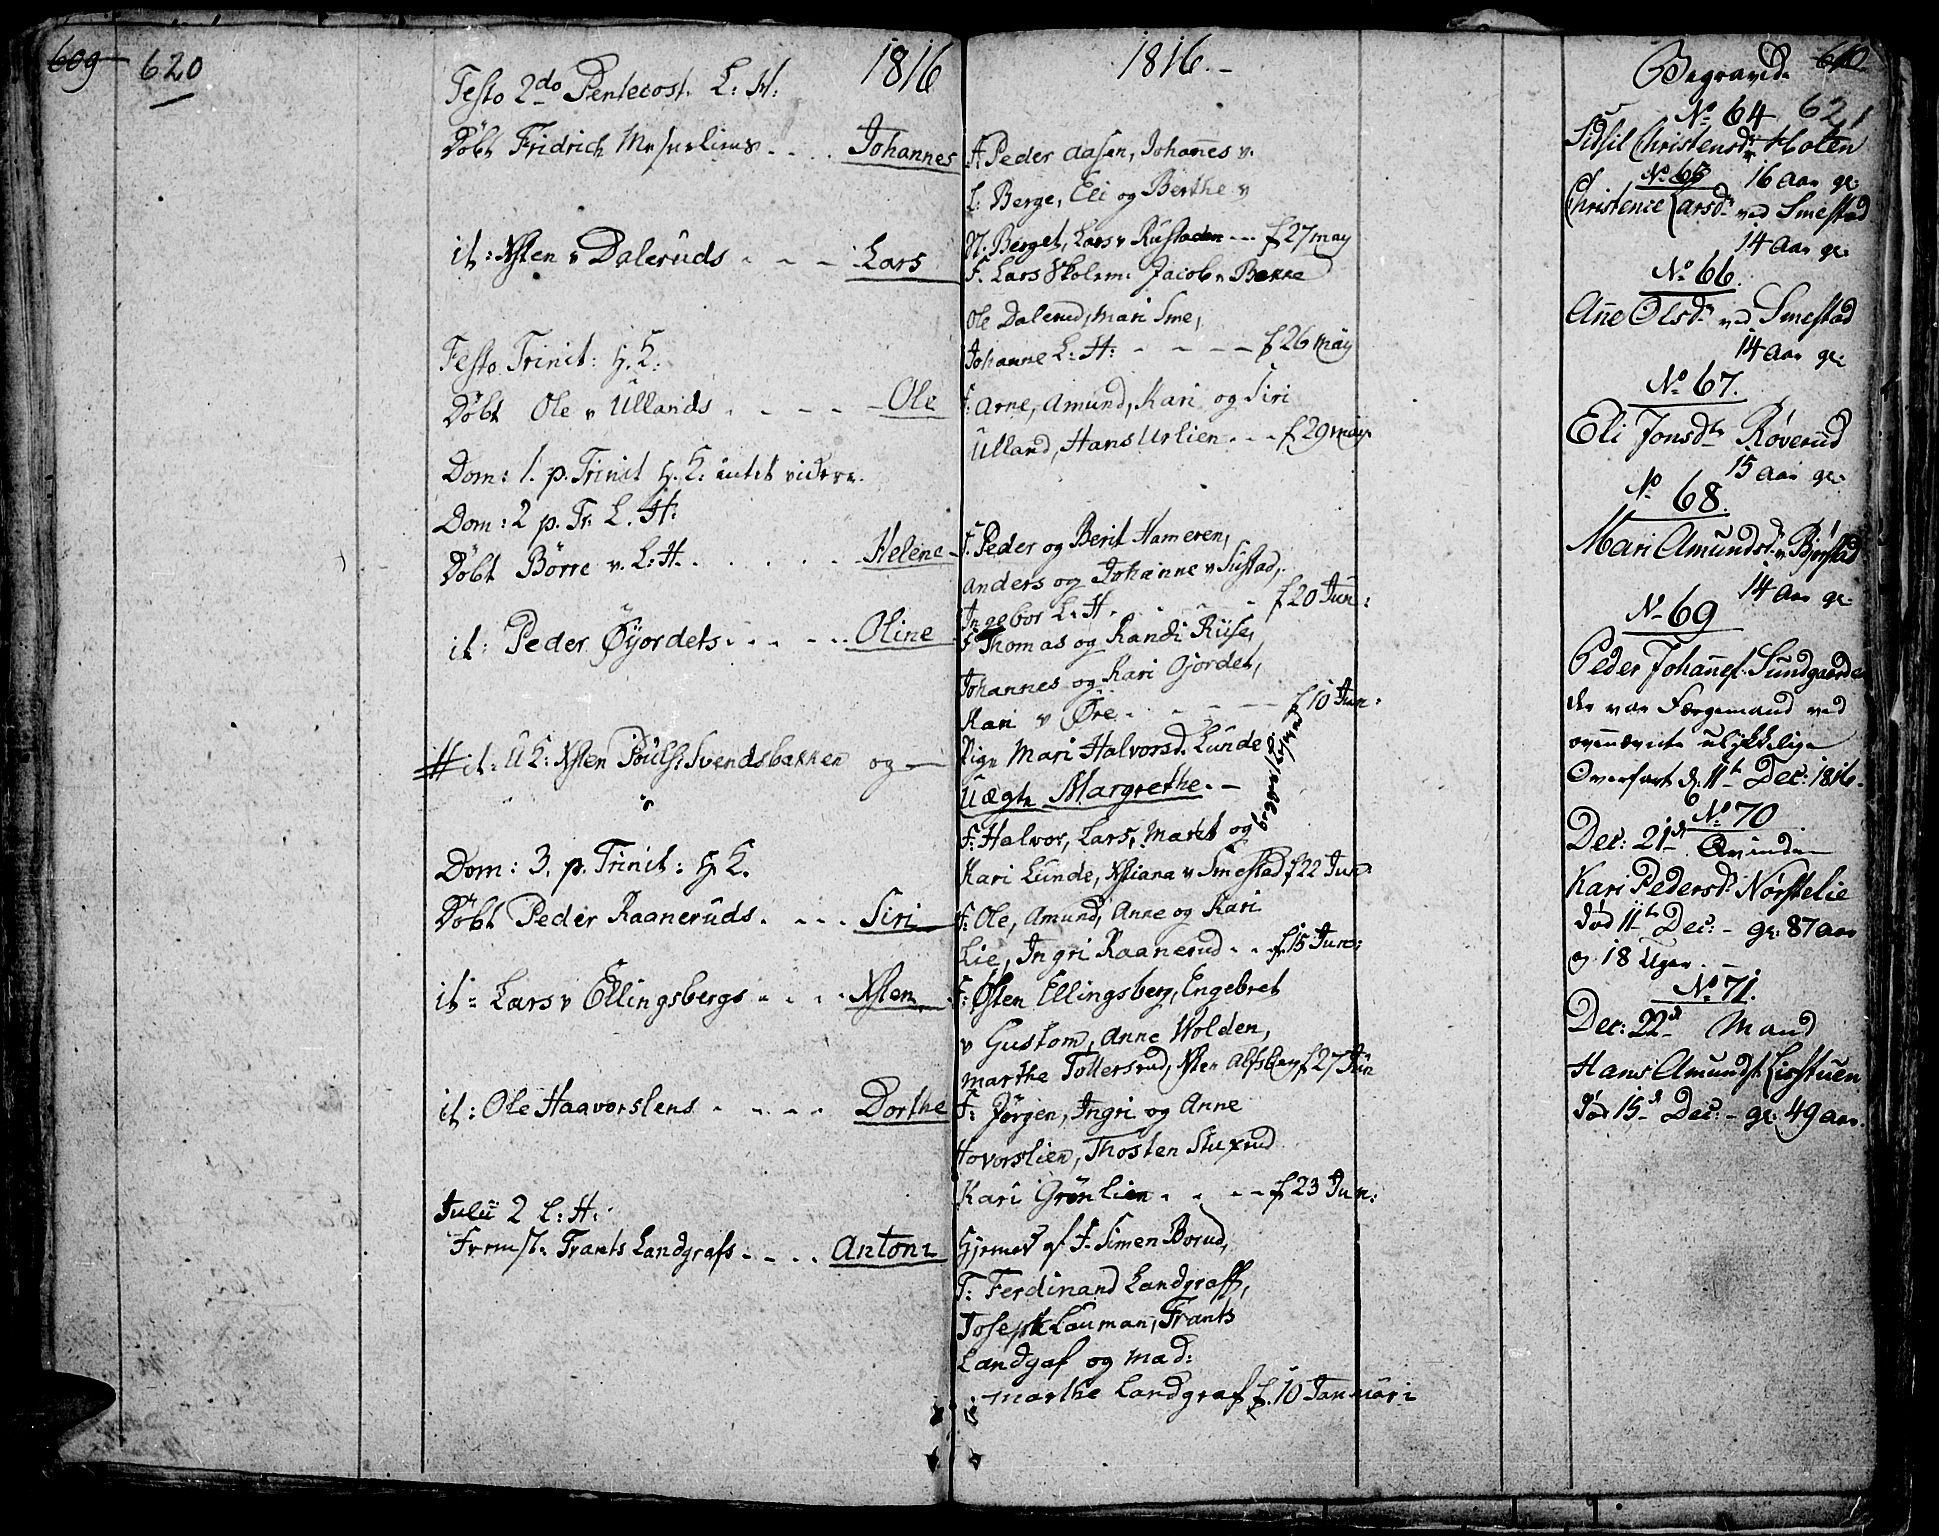 609 620
1816
Festo 2do Pentecost. L: H:
Døbt Fridrich . . . . Johannes
it: Xsten v Dalerúds - - - - Lars
Festo Trinit: H. K:
Døbt Ole v Ullands . - - - Ole
Dom: 1. p. Trinit H. K. intet videre.
Dom: 2 p. Tr. L. H:
Døbt Börre v. L: H. . . . . . . Helene
it: Peder Öÿordets . . . . . Oline
it: U K: Xsten Poüls: Svendsbakken og
Dom: 3. p. Trinit: H K.
Døbt Peder Raanerúds . . . . Siri
it: Lars v Ellingsbergs . . . . Xsten
it: Ole Haavorslens . . . . . Dorthe
Julii 2 L: H:
Fremst: Frants Landgrafs . . . . Antoni
1816. -
F. Peder Aasen, Johanes v.
L: Berge, Eli og Berthe v
N. Berget, Lars v Rustaden -- f 27 may
F. Lars Jacob v Bekke
Ole Dalerud, Mari Sme,
Johanne L: H: - - - - f 26 maÿ
F: Arne, Amund, Kari og Siri
Ulland, Hans Urlien . . . f 29 may
F. Peder og Berit Hameren,
Anders og Johanne v Sustad,
Ingebor L: H. . . . . f 20 Jun:
F Thomas og Randi Riise,
Johannes og Kari Ojordet,
Kari v Öre . . . . . f 10 Jun:
Pige Mari Halvorsd. Lunde
Uægte Margrethe. -
F: Halvor, Lars, Marit og
Kari Lunde, Xstiana v Smestad f 22 Jun:
F: Ole, Amund, Anne og Kari
Lie, Ingri Raanerud . . f. 15 Jun:
F: Østen Ellingsberg, Engebret
v Gustom, Anne Wolden,
Marthe Tollersrud, Xsten Alfsberg f 27 Jun
F: Jörgen, Ingri og Anne
Hovorslien, Thosten Stuxrud
Kari Grönlien . . . . f 23 Jun:
Hjemed. af J. Simen Borud,
F: Ferdinand Landgraff,
Joseph Lauman, Frants
Landgaf og Mad:
Marthe Landgraf f. 10 Januari
Begravede 610
No 64 621
Sidsil Christensdr Holen
No 65 16 Aar gl:
Christence Larsdr ved Smestad
14 Aar gl:
No 66.
Añe Olsdr ved Smestad
14 Aar gl:
No 67.
Eli Jonsdtr Røverüd
15 Aar gl:
No 68.
Mari Amundsdr v. Bjørstad
14 Aar gl:
No 69
Peder Johañes: Sundgaarde
der var Færgemand ved
ovennævnte ulykkelige
Overfart d. 11te Dec: 1816.
No 70
Dec: 21de Qvinden
Kari Pedersdr Nørstelie
død 11te Dec: - gl: 87 Aar
og 18 Uger. -
No 71.
Dec: 22de Mand
Hans Amunds: Listuen
død 15de Dec: - gl: 49 aar.